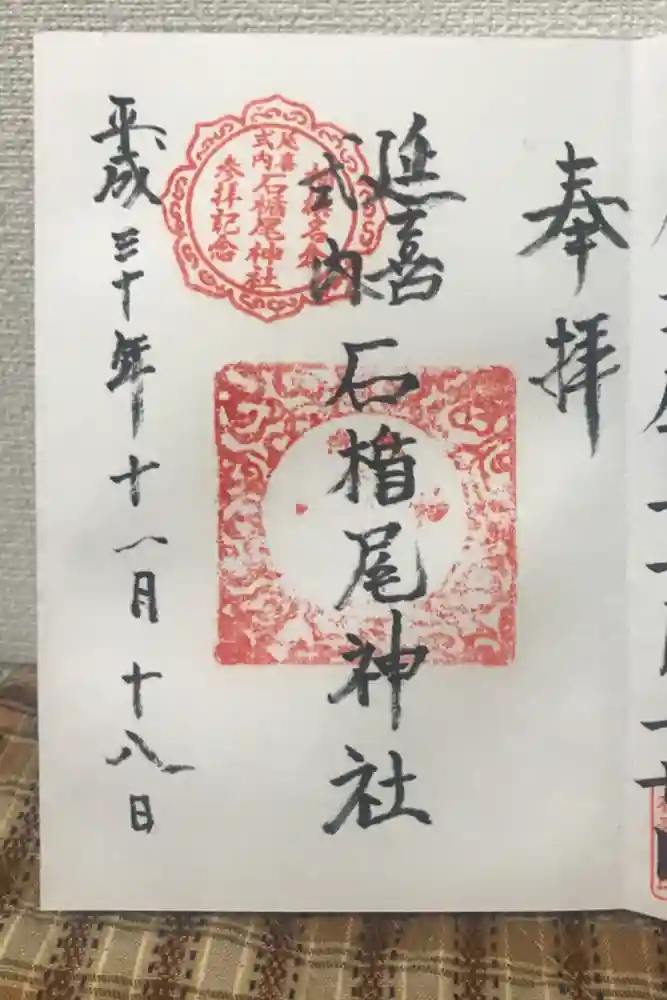 奉拝
延喜
式内
石楯尾神社
平成三十年十一月十八日
延喜
式内
石楯尾神社
参拝記念